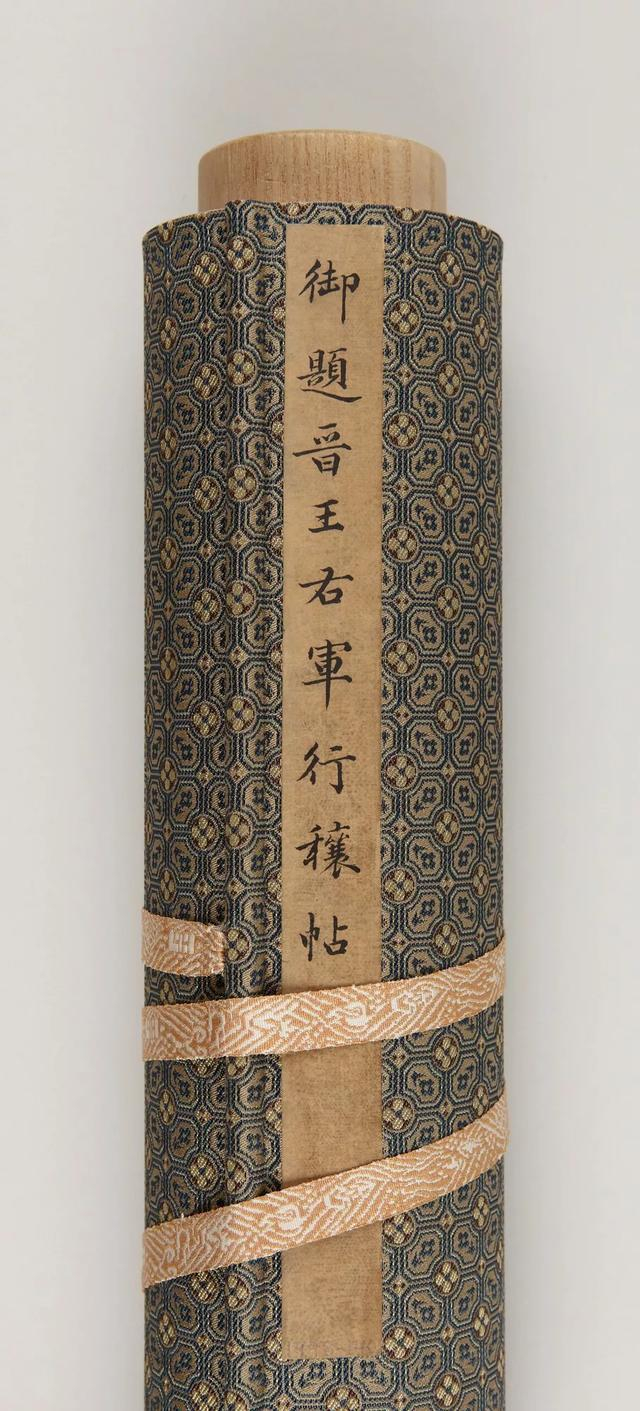 御題晉王右軍行穰帖